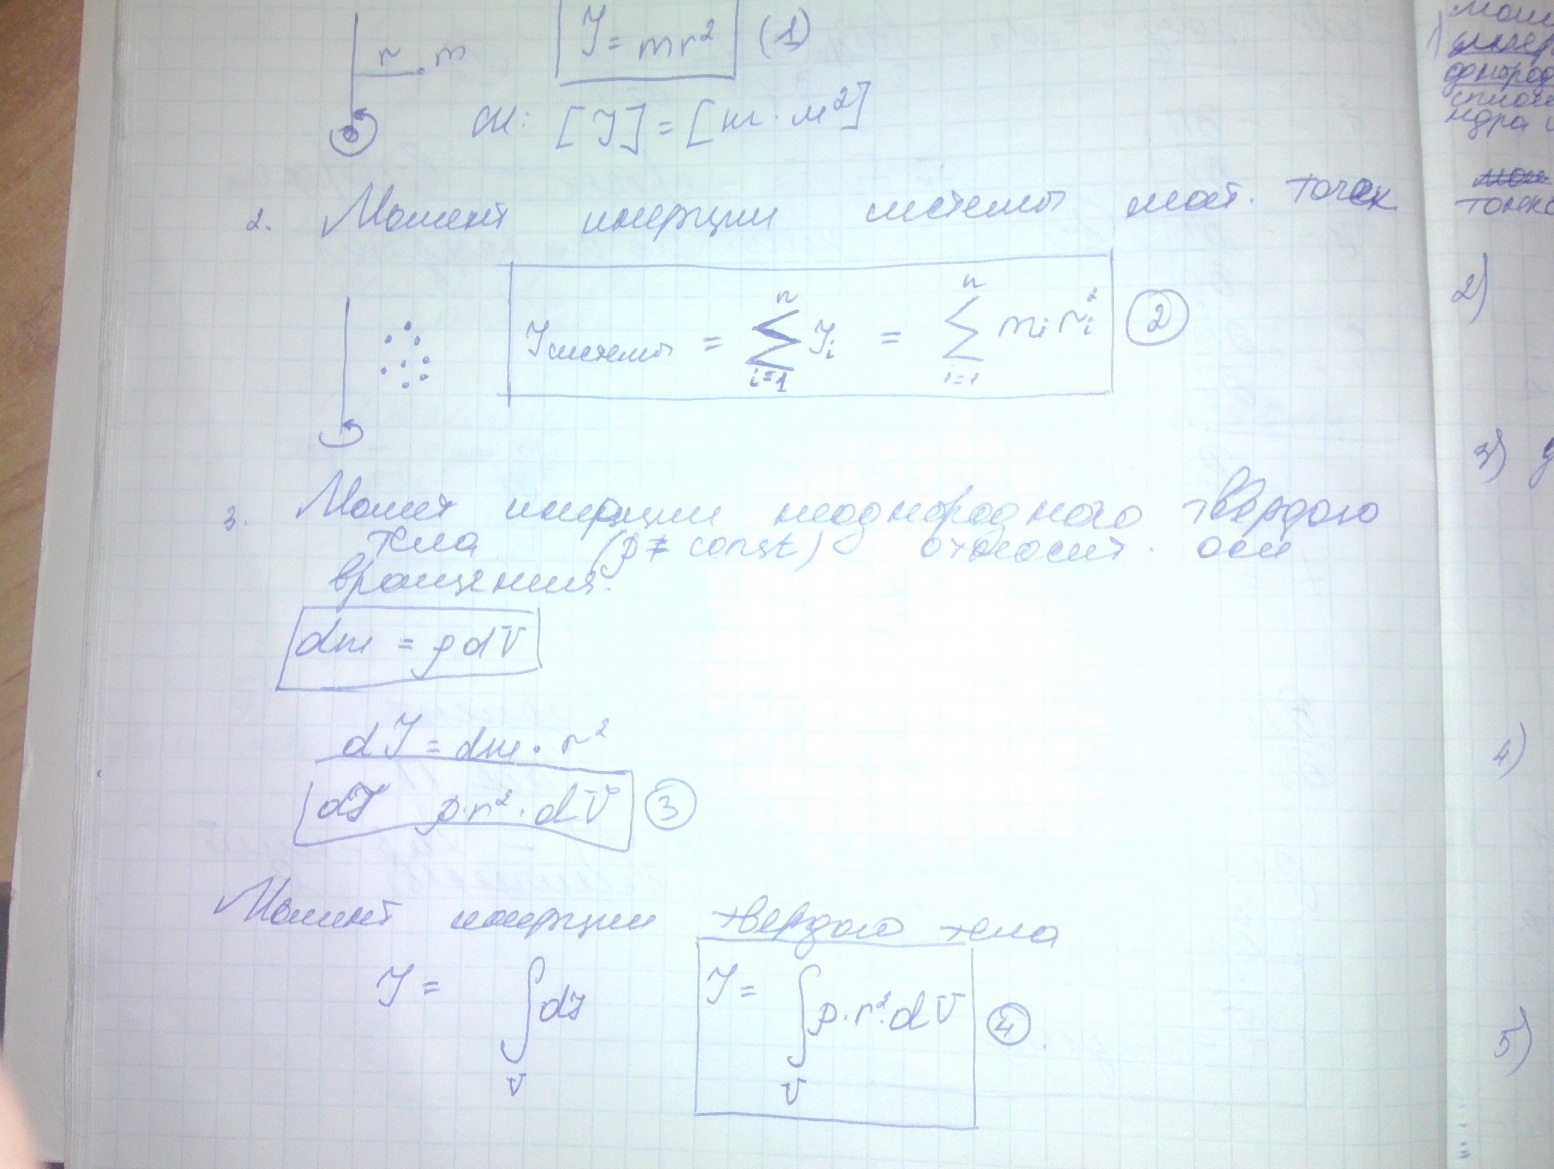 r m J = mr² (1)
СИ: [J] = [кг · м²]
2. Момент инерции системы мат. точек
Jсистемы = ∑ⁿᵢ₌₁ Jᵢ = ∑ⁿᵢ₌₁ mᵢrᵢ² (2)
3. Момент инерции неоднородного твердого
тела (ρ ≠ const) относит. оси
вращения.
dm = ρdV
dJ = dm · r²
dJ ρ·r²·dV (3)
Момент инерции твердого тела
J = ∫ dJ J = ∫ ρ·r²·dV (4)
V V
1)
2)
3)
4)
5)